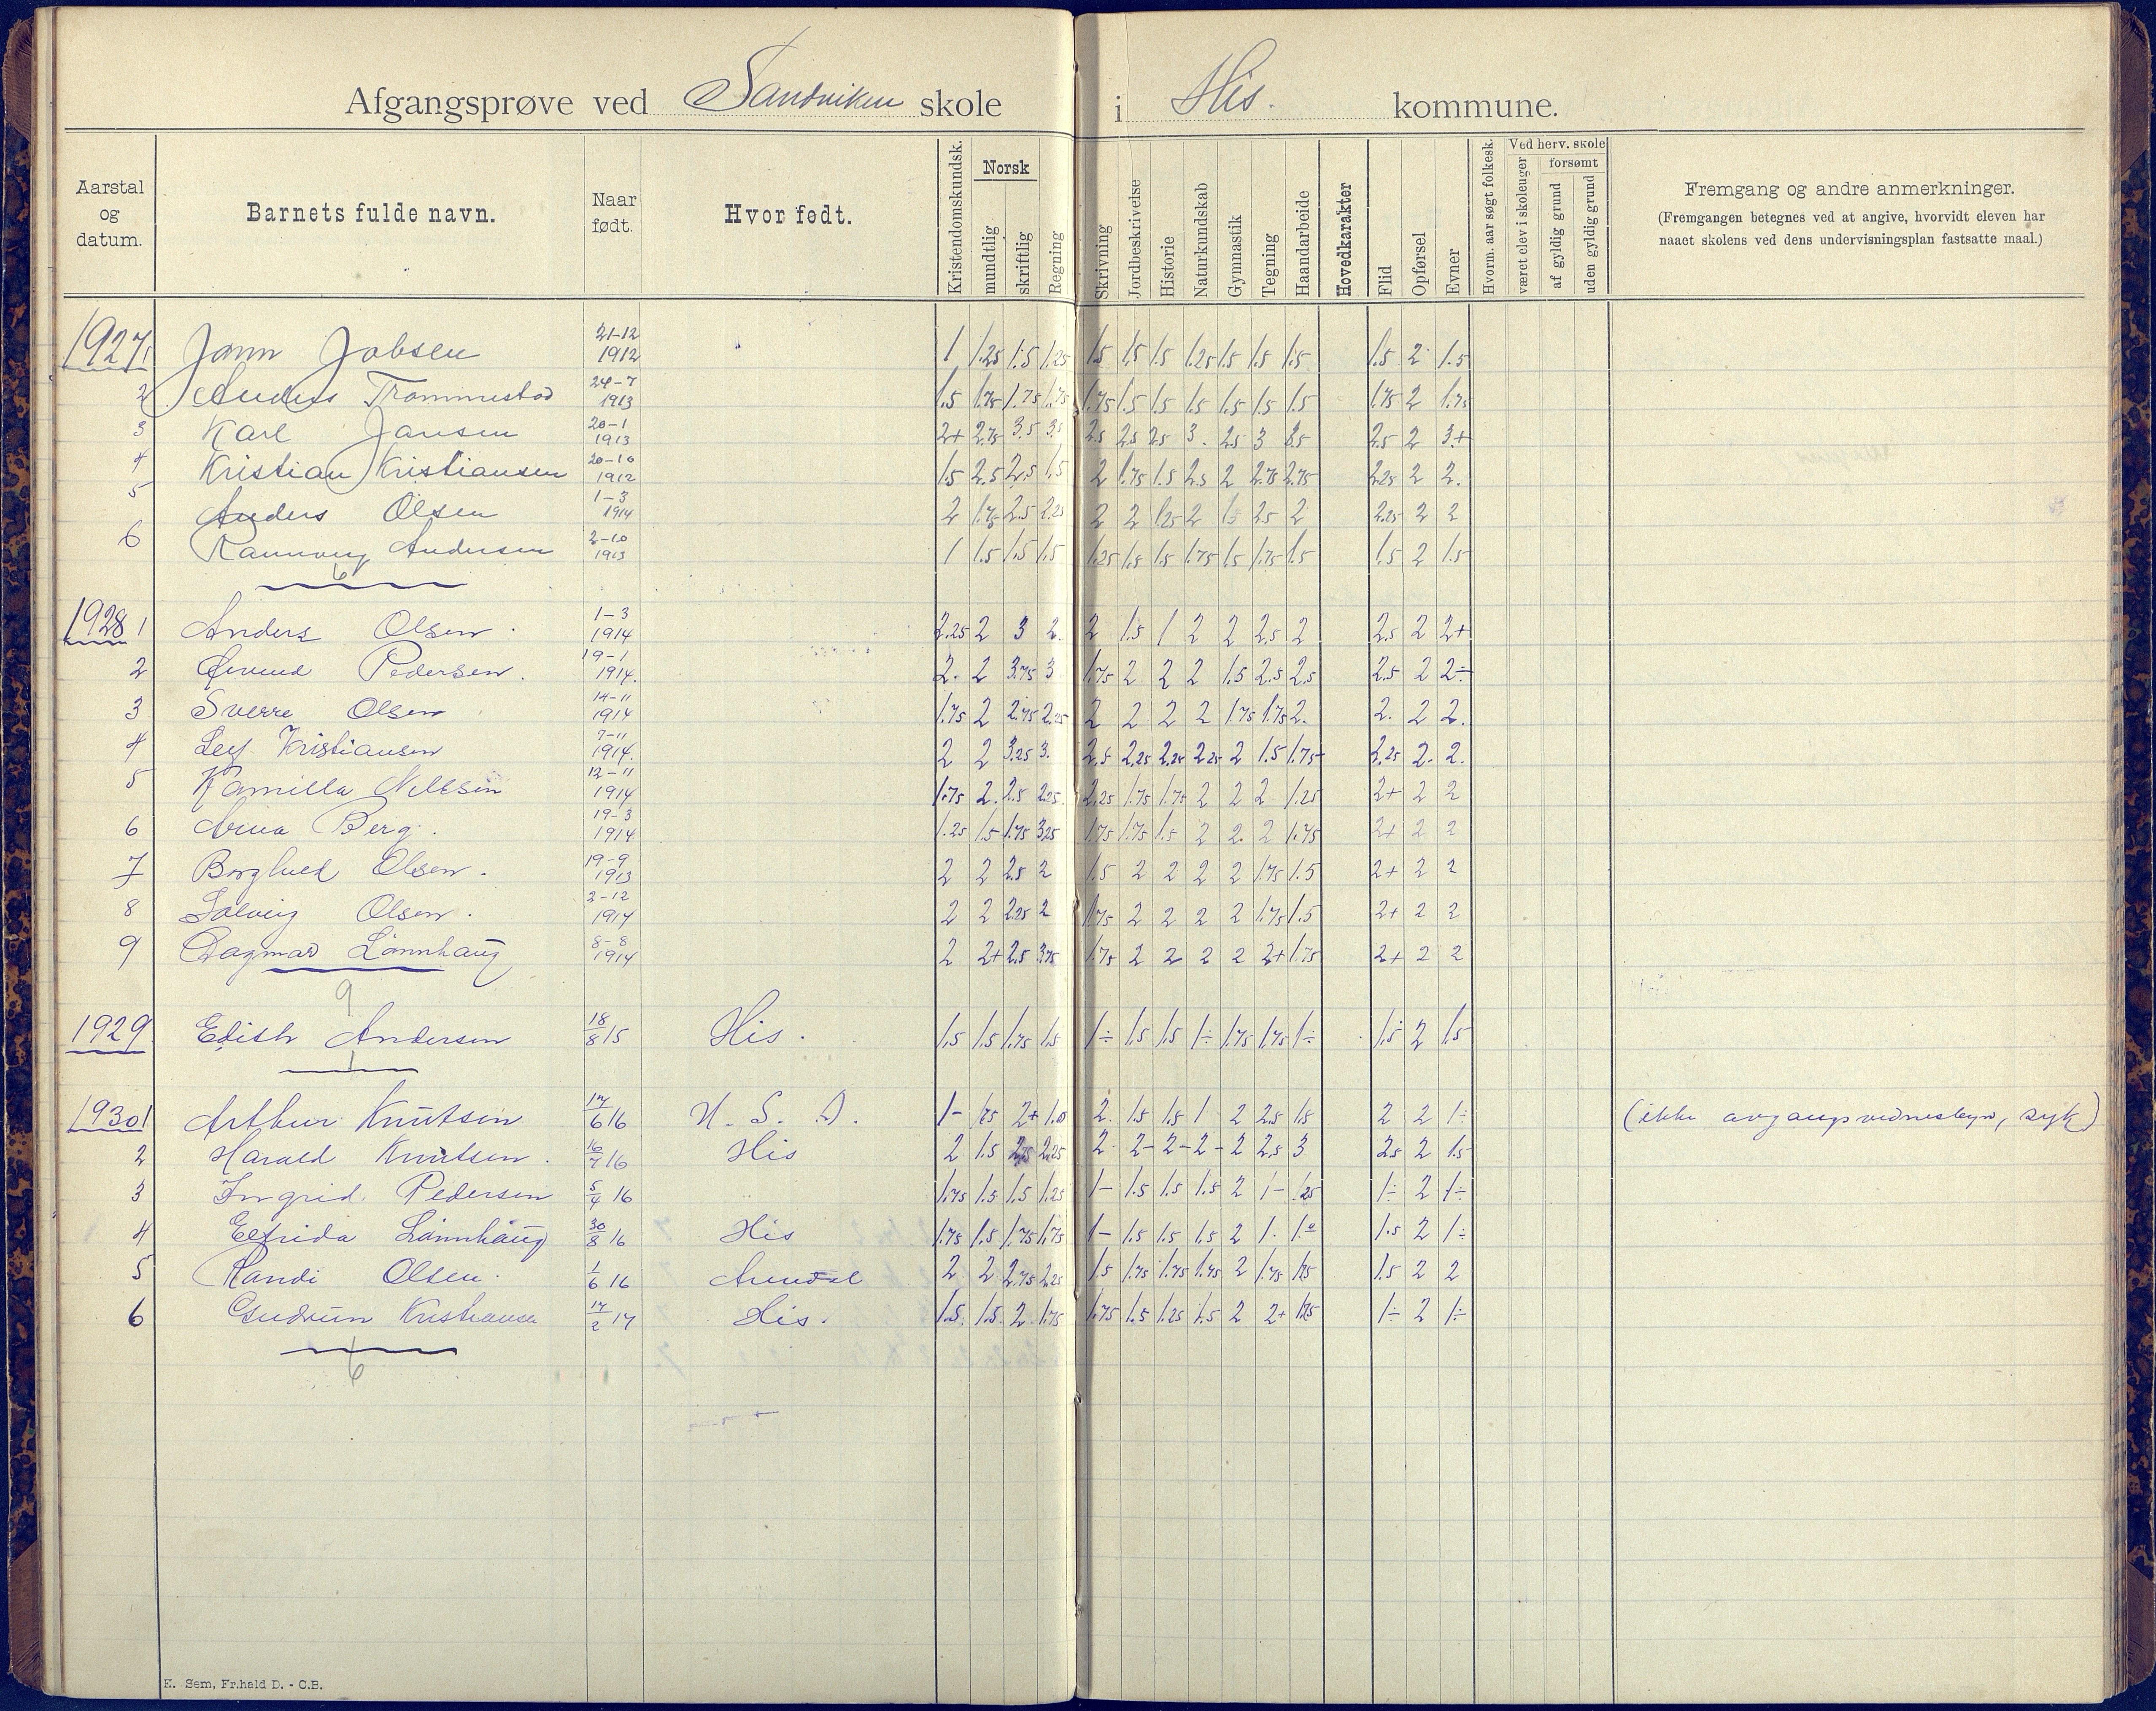 Afgangsprøve ved Sandviken skole i His. kommune.
Aarstal og datum.
Barnets fulde navn.
Naar født.
Hvor født.
Kristendomskundsk.
Norsk
mundtlig
skriftlig
Regning
Skrivning
Jordbeskrivelse
Historie
Naturkundskab
Gymnastik
Tegning
Haandarbeide
Hovedkarakter
Flid
Opførsel
Evner
Hvorm. aar søgt folkesk.
Ved herv. skole
været elev i skoleuger
forsømt
af gyldig grund
uden gyldig grund
Fremgang og andre anmerkninger.
(Fremgangen betegnes ved at angive, hvorvidt eleven har
naaet skolens ved dens undervisningsplan fastsatte maal.)
1927 1 Jobsen 21-12 1912 1 1.25 1.5 1.25 1.5 1.5 1.5 1.25 1.5 1.5 1.5 1.5 2 1.5
2 Anders Trommestad 24-7 1913 1.5 1.75 1.75 1.75 1.75 1.5 1.5 1.5 1.5 1.5 1.5 1.75 2 1.75
3 Karl Jansen 20-1 1913 2+ 2.75 3.5 3.5 2.5 2.5 2.5 3. 2.5 3 2.5 2 3+
4 Kristian Kristiansen 20-10 1912 1.5 2.5 2.5 1.5 2 1.75 1.5 2.5 2 2.75 2.75 2.25 2 2.
5 Anders Olsen 1-3 1914 2 1.75 2.5 2.25 2 2 1.25 2 1.5 2.5 2 2.25 2 2
6 Rannveig Andersen 2-10 1913 1 1.5 1.5 1.5 1.25 1.5 1.5 1.75 1.5 1.75 1.5 1.5 2 1.5
6
1928 1 Anders Olsen. 1-3 1914 2.25 2 3 2. 2 1.5 1 2 2 2.5 2 2.5 2 2+
2 Øivind Pedersen. 19-1 1914. 2. 2 3.75 3 1.75 2 2 2 1.5 2.5 2.5 2.5 2 2÷
3 Sverre Olsen 14-11 1914 1.75 2 2.75 2.25 2 2 2 2 1.75 1.75 2. 2. 2 2.
4 Leif Kristiansen 7-11 1914. 2 2 3.25 3. 2.5 2.25 2.25 2.25 2 1.5 1.75 2.25 2. 2.
5 Kamilla Nilssen 12-11 1914 1.75 2. 2.5 2.25. 2.25 1.75 1.75 2 2 2 1.25 2+ 2 2
6 Anna Berg. 19-3 1914 1.25 1.5 1.75 3.25 1.75 1.75 1.5 2 2. 2 1.75 2+ 2 2
7 Borghild Olsen. 19-9 1913 2 2 2.5 2 1.5 2 2 2 2 1.75 1.5 2+ 2 2
8 Solveig Olsen. 2-12 1914 2 2 2.25 2 1.75 2 2 2 2 1.75 1.5 2+ 2 2
9 Dagmar Lønnhaug 8-8 1914 2 2+ 2.5 3.75 1.75 2 2 2 2 2+ 1.75 2+ 2 2
9
1929 Edith Andersen 18/8 15 His. 1.5 1.5 1.75 1.5 1÷ 1.5 1.5 1÷ 1.75 1.75 1÷ 1.5 2 1.5
1
1930 1 Arthur Knutsen 17/6 16 U. S. A. 1- 1.75 2+ 1.0 2. 1.5 1.5 1 2 2.5 1.5 2 2 1÷ (ikke avgangsvidnesbyrd, syk)
2 Harald Knutsen. 16/7 16 His 2 1.5 2.75 2.25 2 2- 2- 2- 2 2.5 3 2.5 2 1.5
3 Ingrid Pedersen 5/4 16 1.75 1.5 1.5 1.25 1- 1.5 1.5 1.5 2 1- 1.25 1÷ 2 1÷
4 Elfrida Lønnhaug 30/8 16 His 1.75 1.5 1.75 1.75 1- 1.5 1.5 1.5 2 1. 1.0 1.5 2 1÷
5 Randi Olsen. 1/6 16 Arendal 2 2 2.75 2.25 1.5 1.75 1.75 1.75 2 1.75 1.75 1.5 2 2
6 Gudrun Kristiansen 17/2 17 His. 1.5. 1.5 2 1.75 1.75 1.5 1.25 1.5 2 2+ 1.75 1÷ 2 1÷
6
E. Sem, Fr.hald D. - C.B.